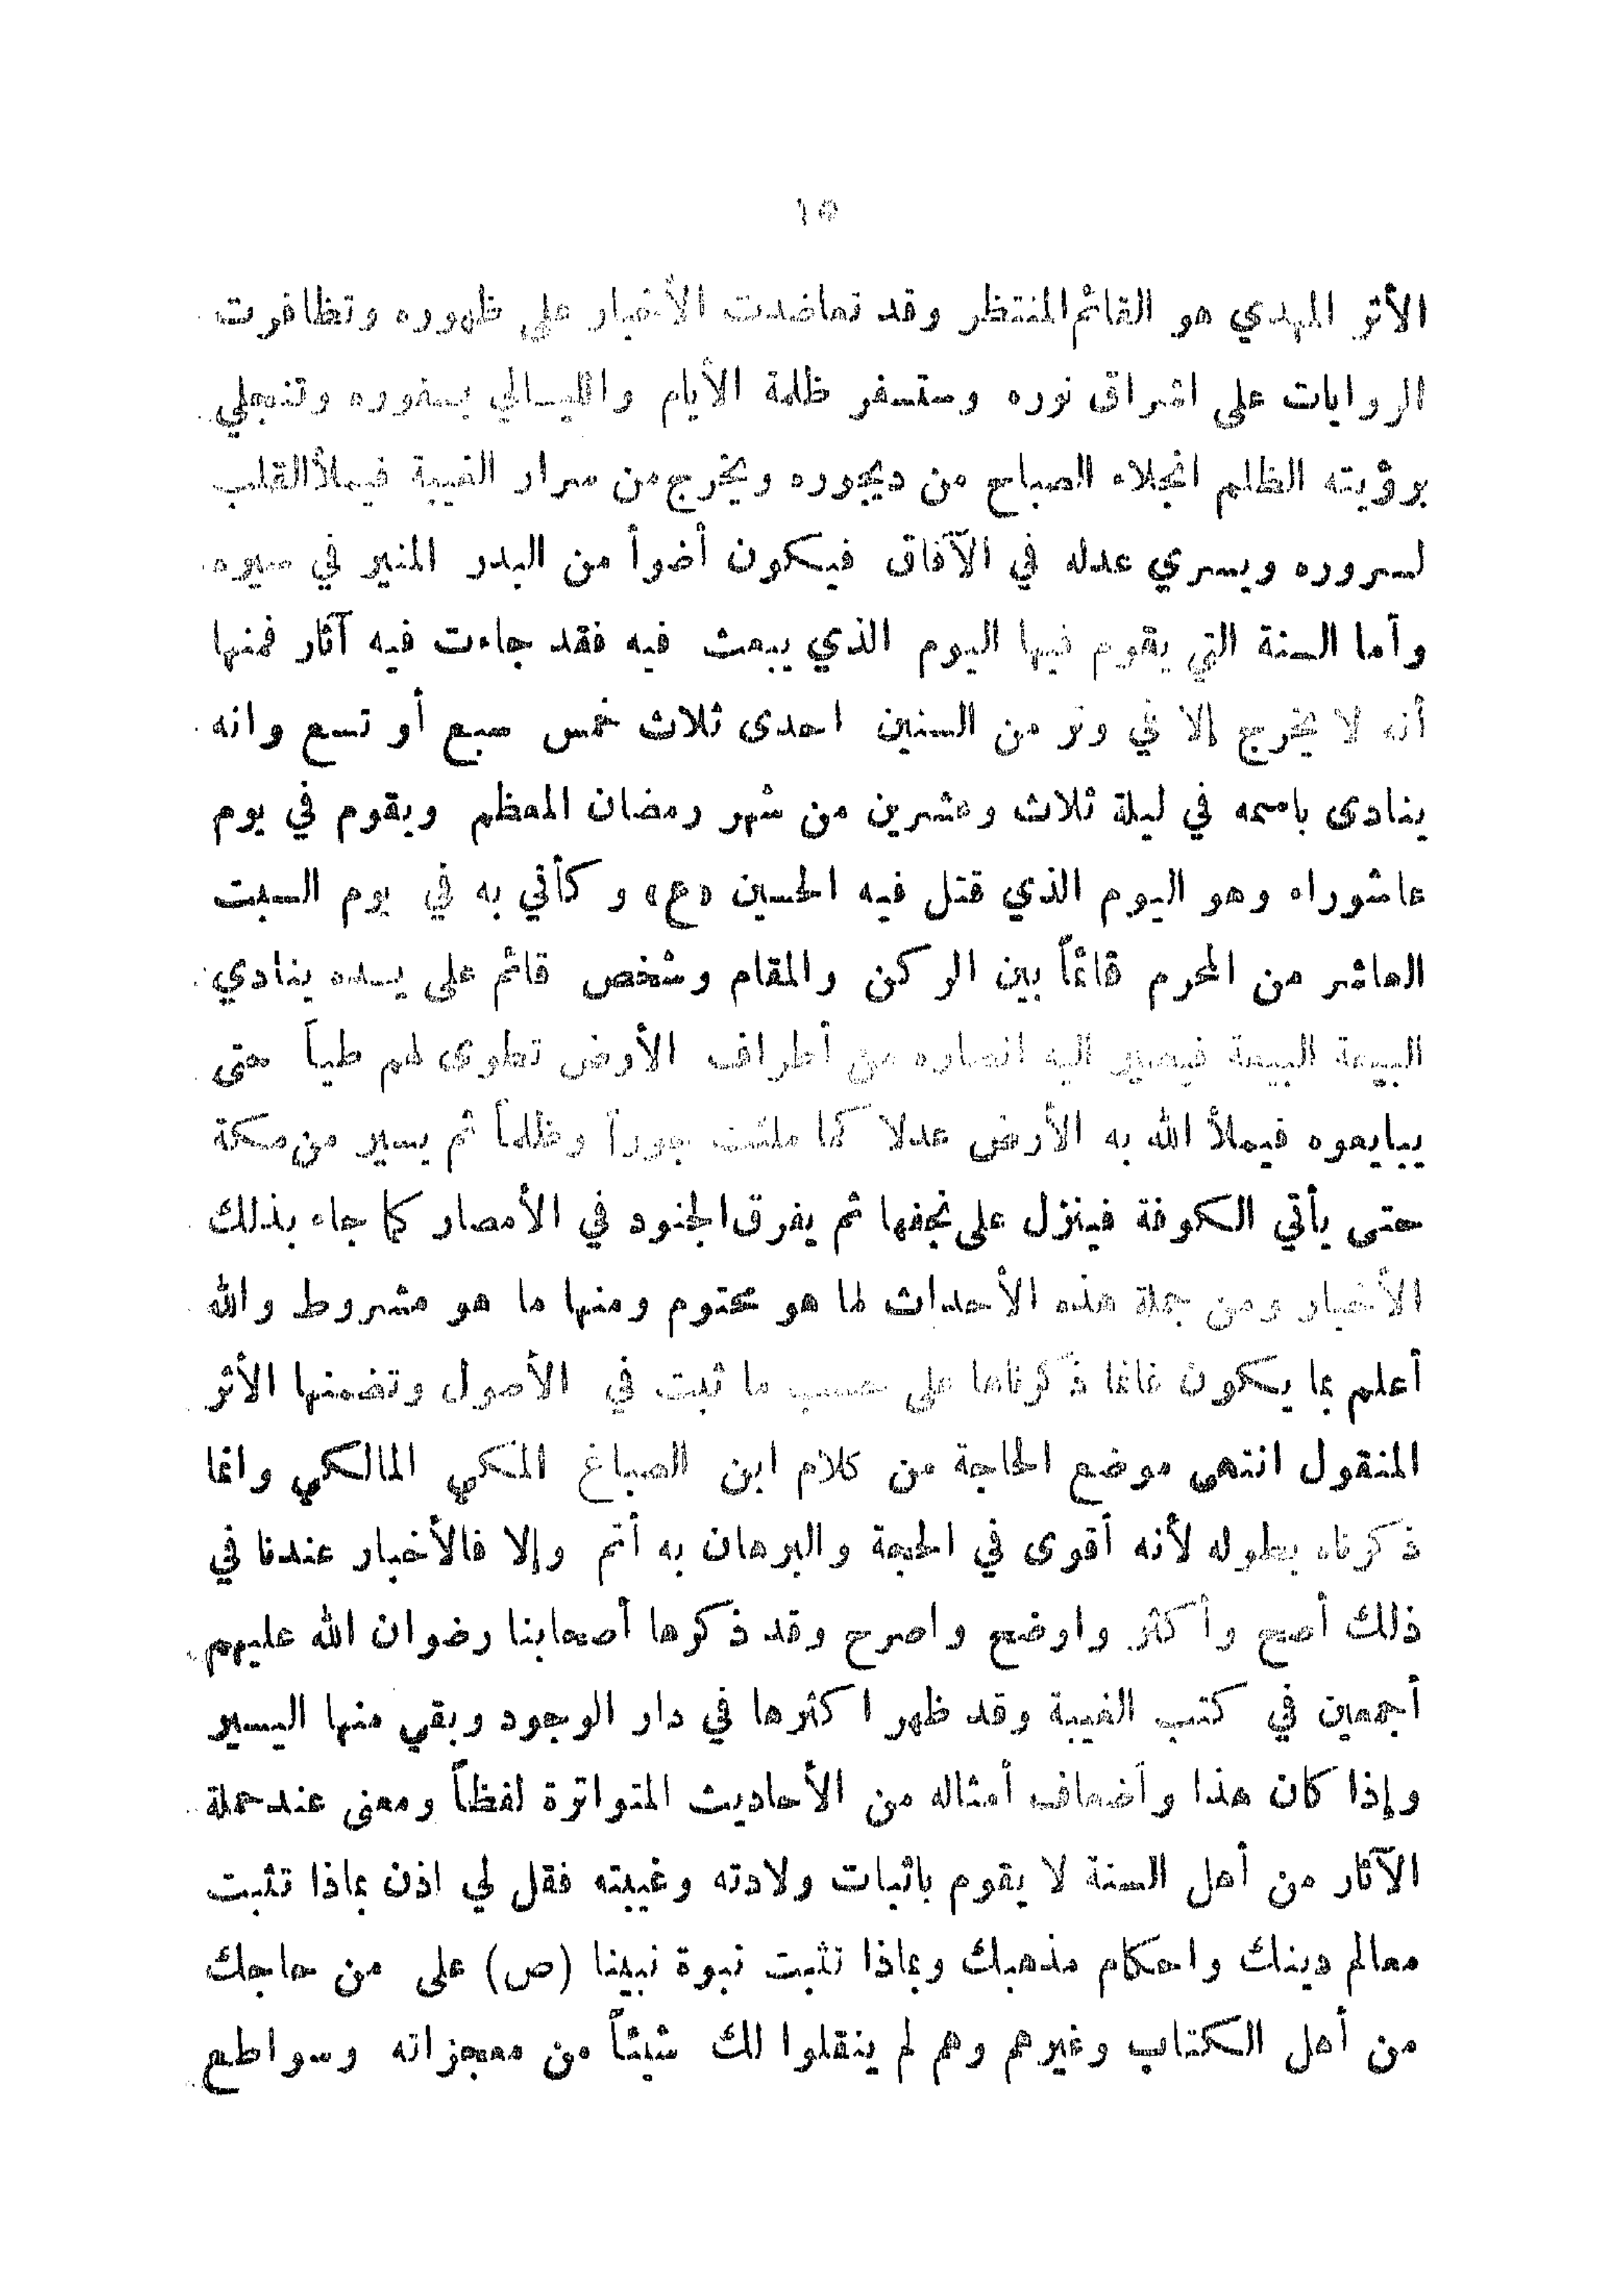 ١٥
الأثر المهدي هو القائم المنتظر وقد تعاضدت الأخبار على ظهوره وتظافرت
الروايات على اشراق نوره وستسفر ظلمة الأيام والليالي بسفوره وتنجلي
برؤيته الظلم انجلاء الصباح من ديجوره ويخرج من سرار الغيبة فيملأ القلب
لسروره ويسري عدله في الآفاق فيكون أضوأ من البدر المنير في سيره
وأما السنة التي يقوم فيها اليوم الذي يبعث فيه فقد جاءت فيه آثار فمنها
أنه لا يخرج إلا في وتر من السنين احدى ثلاث خمس سبع أو تسع وانه
ينادى باسمه في ليلة ثلاث وعشرين من شهر رمضان المعظم ويقوم في يوم
عاشوراء وهو اليوم الذي قتل فيه الحسين «ع» وكأني به في يوم السبت
العاشر من المحرم قائماً بين الركن والمقام وشخص قائم على يده ينادي
البيعة البيعة فيصير اليه انصاره من أطراف الأرض تطوى لهم طياً حتى
يبايعوه فيملأ الله به الأرض عدلا كما ملئت جوراً وظلماً ثم يسير من مكة
حتى يأتي الكوفة فينزل على نجفها ثم يفرق الجنود في الأمصار كما جاء بذلك
الأخبار ومن جملة هذه الأحداث لما هو محتوم ومنها ما هو مشروط والله
أعلم بما يكون غانما ذكرناها على حسب ما ثبت في الأصول وتضمنها الأثر
المنقول انتهى موضع الحاجة من كلام ابن الصباغ المكي المالكي وانما
ذكرناه بطوله لأنه أقوى في الحجة والبرهان به أتم وإلا فالأخبار عندنا في
ذلك أصح وأكثر واوضع واصرح وقد ذكرها أصحابنا رضوان الله عليهم
أجمعين في كتب الغيبة وقد ظهر اكثرها في دار الوجود وبقي منها اليسير
وإذا كان هذا وأضعاف أمثاله من الأحاديث المتواترة لفظاً ومعنى عند حملة
الآثار من أهل السنة لا يقوم باثبات ولادته وغيبته فقل لي اذن بماذا تثبت
معالم دينك واحكام مذهبك وبماذا تثبت نبوة نبينا (ص) على من حاجك
من أهل الكتاب وغيرهم وهم لم ينقلوا لك شيئاً من معجزاته وسواطع